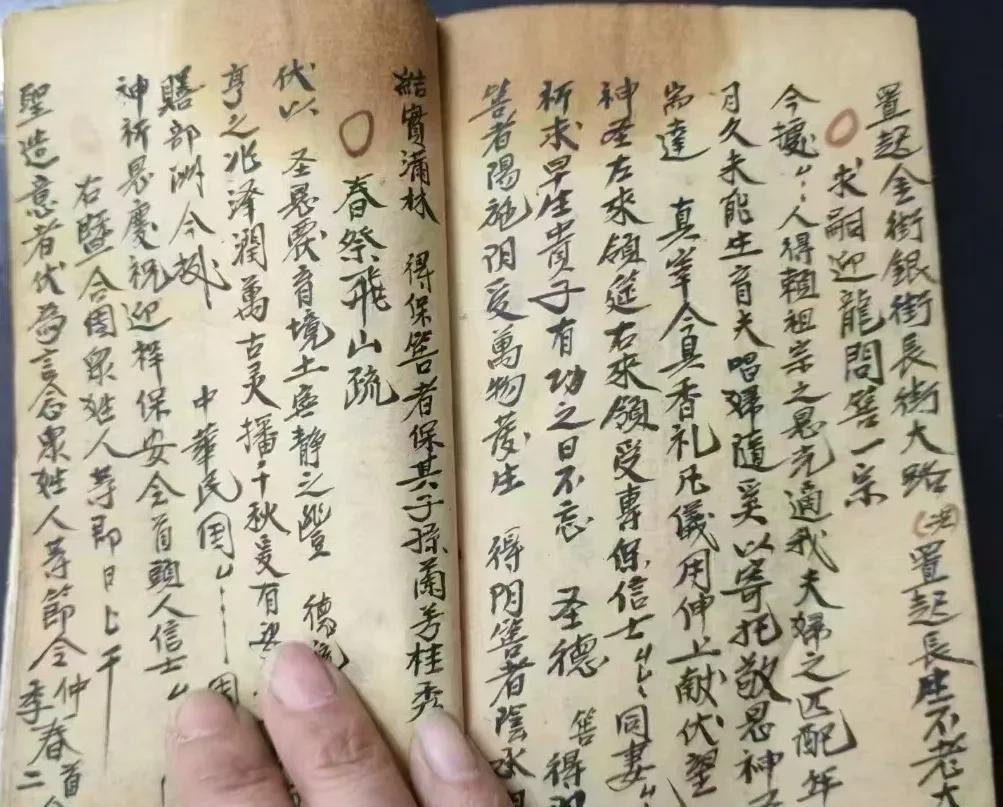 置起金街銀街長街大路置起長生不老大
求嗣迎龍問筶一宗
今據〻人得賴祖宗之恩光適我夫婦之匹配年
月久未能生育夫唱婦隨奚以寄托敬恩神
耑達 真宰今具香礼凡儀用伸上献伏望
神圣左來領筵右來領受專保信士〻同妻〻
祈求早生貴子有功之日不忘 圣德 筶得
筶者陽施阴受萬物發生 得阴筶者陰水
結實滿林 得保筶者保其子孫蘭芳桂秀
春祭飛山疏
伏以 圣恩覃育境土無静之 德
亨之兆泽潤萬古灵播千秋爰有
賜部洲今 中華民国〻
神祈恩慶祝迎祥保安会首頭人信士〻
右暨合團衆姓人等即日上干
聖造意者伏為言念衆姓人等節令仲季春二